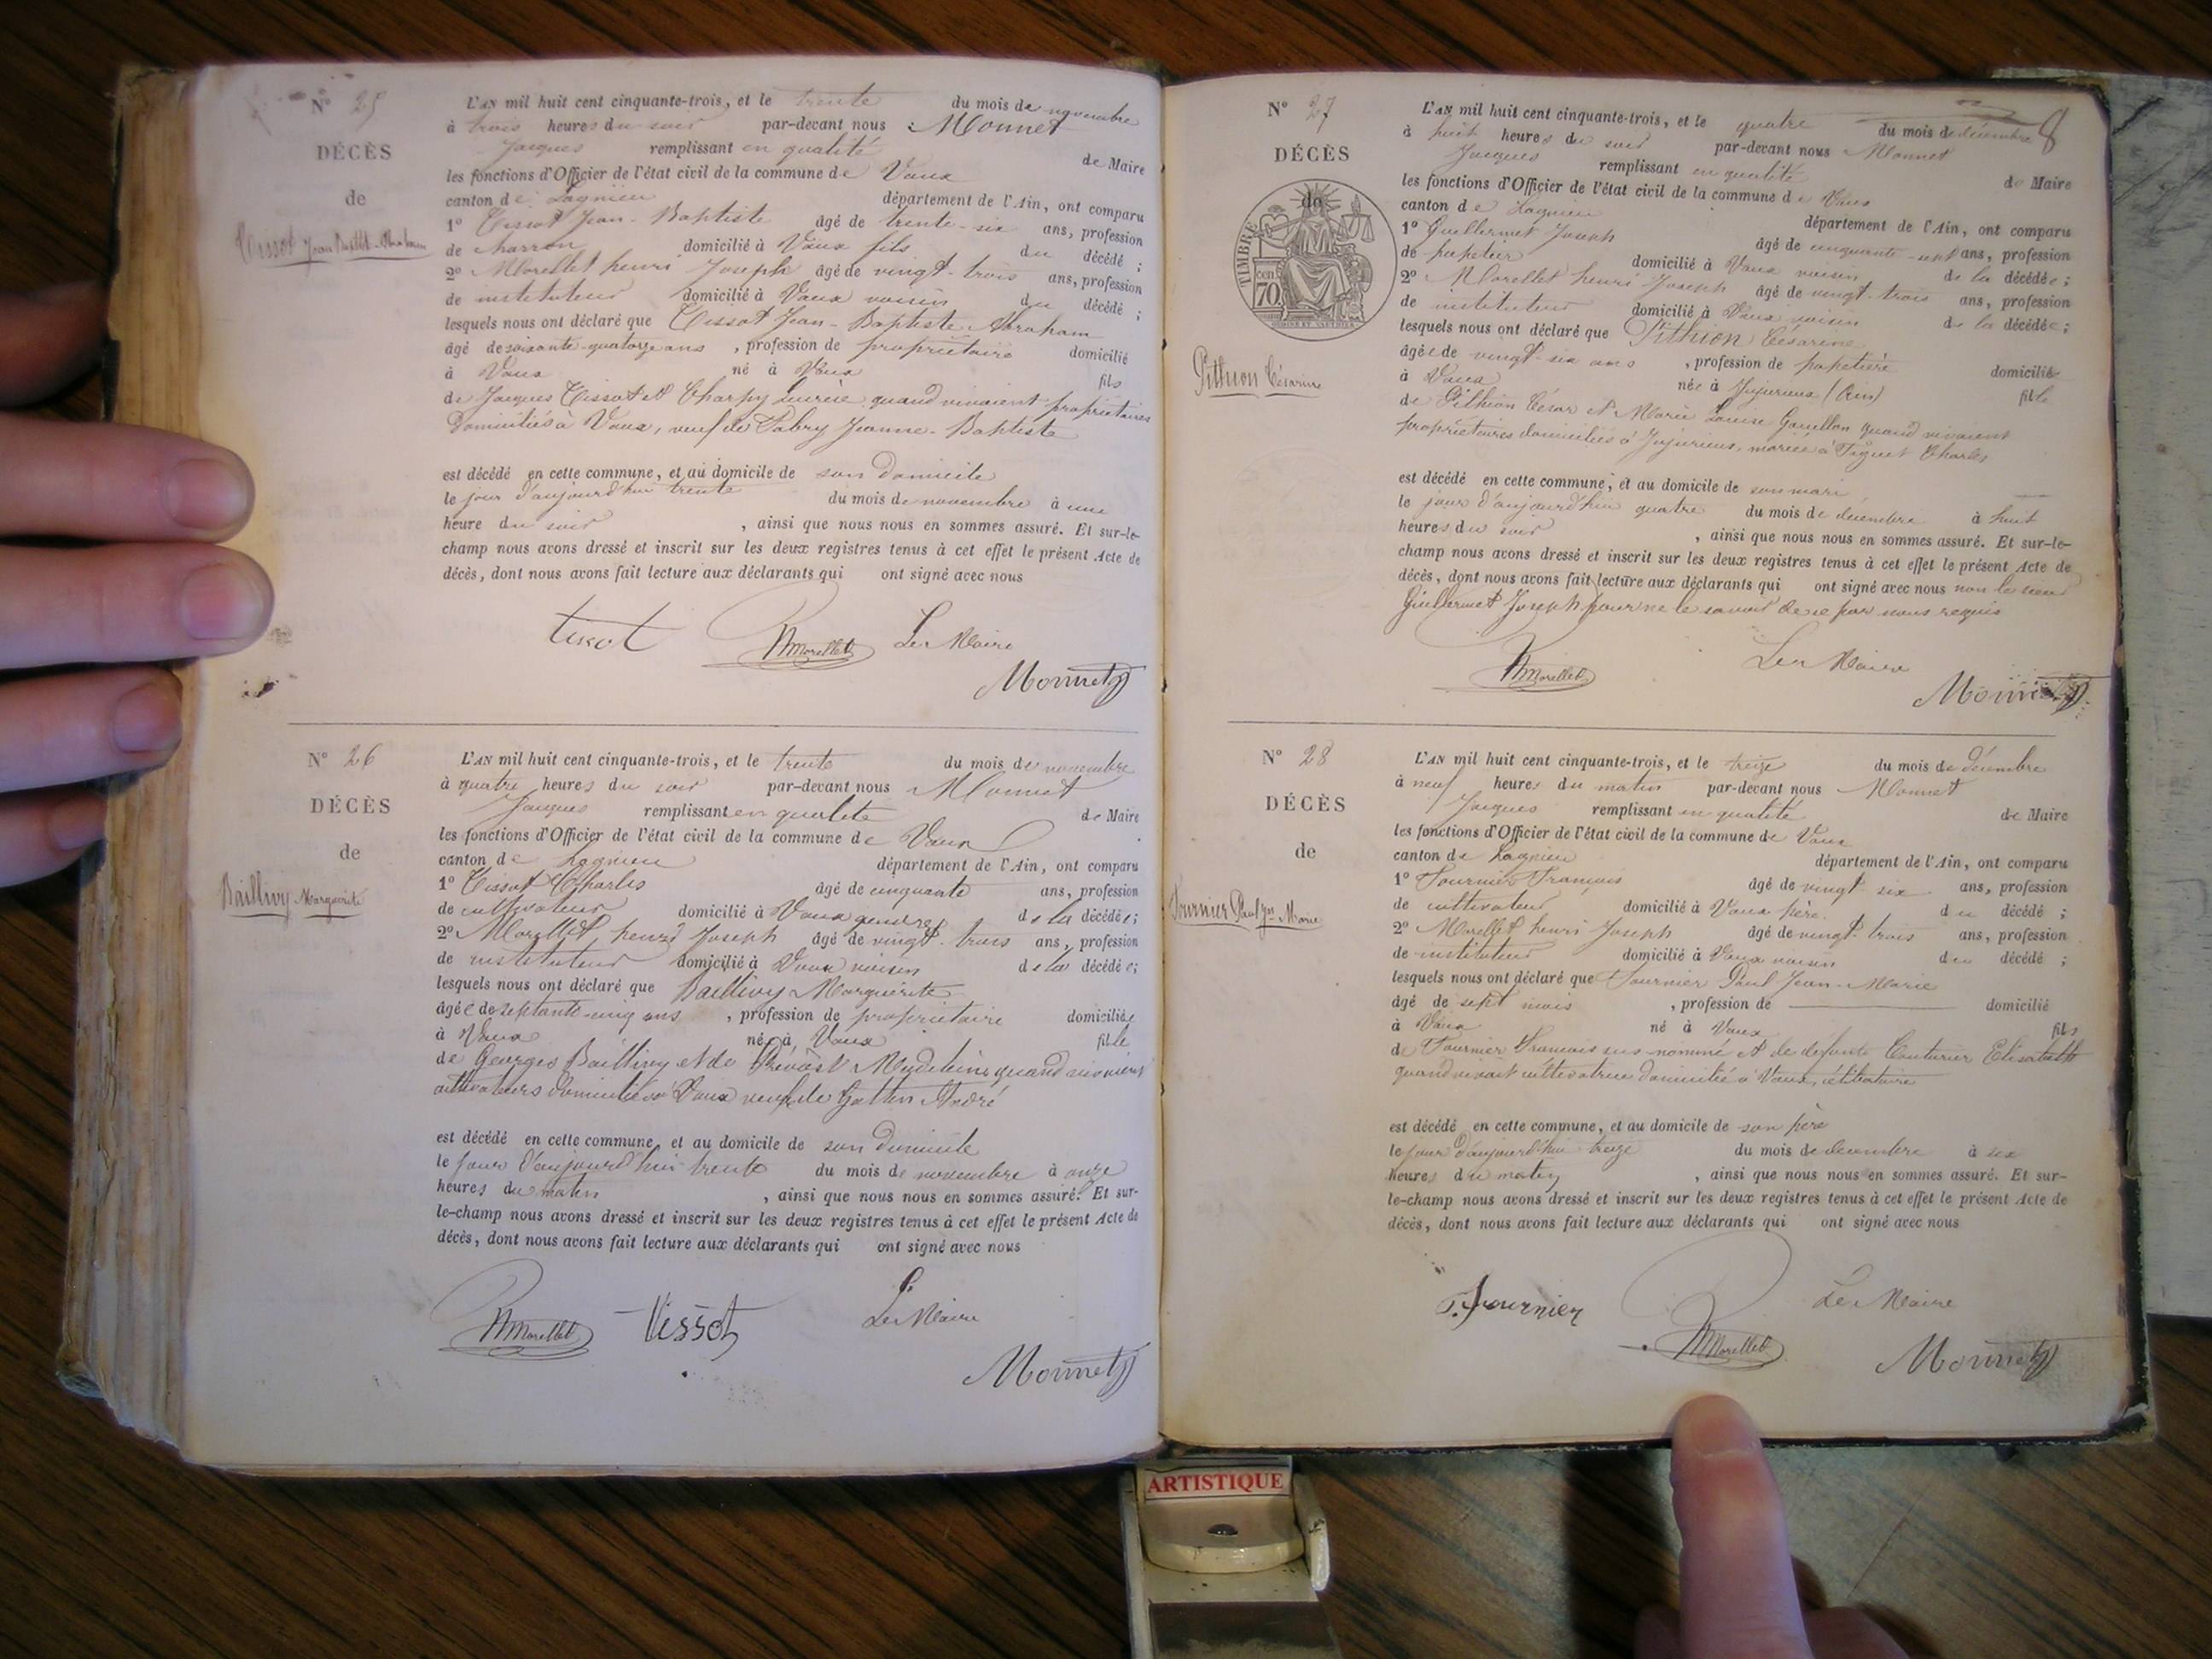 N° 25
DÉCÈS
de
Tissot Jean Baptiste Abraham
L'AN mil huit cent cinquante-trois, et le trente du mois de novembre
à trois heures du soir par-devant nous Monnet
Jacques remplissant en qualité de Maire
les fonctions d'Officier de l'état civil de la commune de Vaux
canton de Lagnieu département de l'Ain, ont comparu
1° Tissot Jean-Baptiste âgé de trente-six ans, profession
de charron domicilié à Vaux fils du décédé ;
2° Morellet henri Joseph âgé de vingt-trois ans, profession
de instituteur domicilié à Vaux voisin du décédé ;
lesquels nous ont déclaré que Tissot Jean-Baptiste Abraham
âgé de soixante-quatorze ans , profession de propriétaire domicilié
à Vaux né à Vaux fils
de Jacques Tissot et Charpy quand vivaient propriétaires
domiciliés à Vaux, veuf de Fabry Jeanne-Baptiste
est décédé en cette commune, et au domicile de son domicile
le jour d'aujourd'hui trente du mois de novembre à une
heure du soir , ainsi que nous nous en sommes assuré. Et sur-le-
champ nous avons dressé et inscrit sur les deux registres tenus à cet effet le présent Acte de
décès, dont nous avons fait lecture aux déclarants qui ont signé avec nous
tissot Morellet Le Maire
Monnet
N° 26
DÉCÈS
de
Baillivy Marguerite
L'AN mil huit cent cinquante-trois, et le trente du mois de novembre
à quatre heures du soir par-devant nous Monnet
Jacques remplissant en qualité de Maire
les fonctions d'Officier de l'état civil de la commune de Vaux
canton de Lagnieu département de l'Ain, ont comparu
1° Tissot Charles âgé de cinquante ans, profession
de cultivateur domicilié à Vaux gendre de la décédée ;
2° Morellet henri Joseph âgé de vingt-trois ans, profession
de instituteur domicilié à Vaux voisin de la décédée ;
lesquels nous ont déclaré que Baillivy Marguerite
âgée de septante-cinq ans , profession de propriétaire domiciliée
à Vaux née à Vaux fille
de Georges Baillivy et de Prévost Madeleine quand vivaient
cultivateurs domiciliés à Vaux veuve de André
est décédé en cette commune, et au domicile de son domicile
le jour d'aujourd'hui trente du mois de novembre à onze
heures du matin , ainsi que nous nous en sommes assuré. Et sur-
le-champ nous avons dressé et inscrit sur les deux registres tenus à cet effet le présent Acte de
décès, dont nous avons fait lecture aux déclarants qui ont signé avec nous
Morellet Tissot Le Maire
Monnet
8
N° 27
DÉCÈS
de
TIMBRE
70 cen
Pithion Césarine
L'AN mil huit cent cinquante-trois, et le quatre du mois de décembre
à huit heures du soir par-devant nous Monnet
Jacques remplissant en qualité de Maire
les fonctions d'Officier de l'état civil de la commune de Vaux
canton de Lagnieu département de l'Ain, ont comparu
1° Guillermet Joseph âgé de cinquante-sept ans, profession
de papetier domicilié à Vaux voisin de la décédée ;
2° Morellet henri Joseph âgé de vingt-trois ans, profession
de instituteur domicilié à Vaux voisin de la décédée ;
lesquels nous ont déclaré que Pithion Césarine
âgée de vingt-six ans , profession de papetière domiciliée
à Vaux née à Jujurieux (Ain) fille
de Pithion César et Marie Louise quand vivaient
propriétaires domiciliés à Jujurieux, mariée à Charles
est décédé en cette commune, et au domicile de son mari
le jour d'aujourd'hui quatre du mois de décembre à huit
heures du soir , ainsi que nous nous en sommes assuré. Et sur-le-
champ nous avons dressé et inscrit sur les deux registres tenus à cet effet le présent Acte de
décès, dont nous avons fait lecture aux déclarants qui ont signé avec nous non le sieur
Guillermet Joseph pour ne le savoir de ce par nous requis
Morellet Le Maire
Monnet
N° 28
DÉCÈS
de
Fournier Paul Jn Marie
L'AN mil huit cent cinquante-trois, et le treize du mois de décembre
à neuf heures du matin par-devant nous Monnet
Jacques remplissant en qualité de Maire
les fonctions d'Officier de l'état civil de la commune de Vaux
canton de Lagnieu département de l'Ain, ont comparu
1° Fournier François âgé de vingt-six ans, profession
de cultivateur domicilié à Vaux père du décédé ;
2° Morellet henri Joseph âgé de vingt-trois ans, profession
de instituteur domicilié à Vaux voisin du décédé ;
lesquels nous ont déclaré que Fournier Paul Jean-Marie
âgé de sept mois , profession de domicilié
à Vaux né à Vaux fils
de Fournier François sus-nommé et de défunte Couturier Elisabeth
quand vivait cultivatrice domicilié à Vaux, célibataire
est décédé en cette commune, et au domicile de son père
le jour d'aujourd'hui treize du mois de décembre à six
heures du matin , ainsi que nous nous en sommes assuré. Et sur-
le-champ nous avons dressé et inscrit sur les deux registres tenus à cet effet le présent Acte de
décès, dont nous avons fait lecture aux déclarants qui ont signé avec nous
Fournier Morellet Le Maire
Monnet
ARTISTIQUE